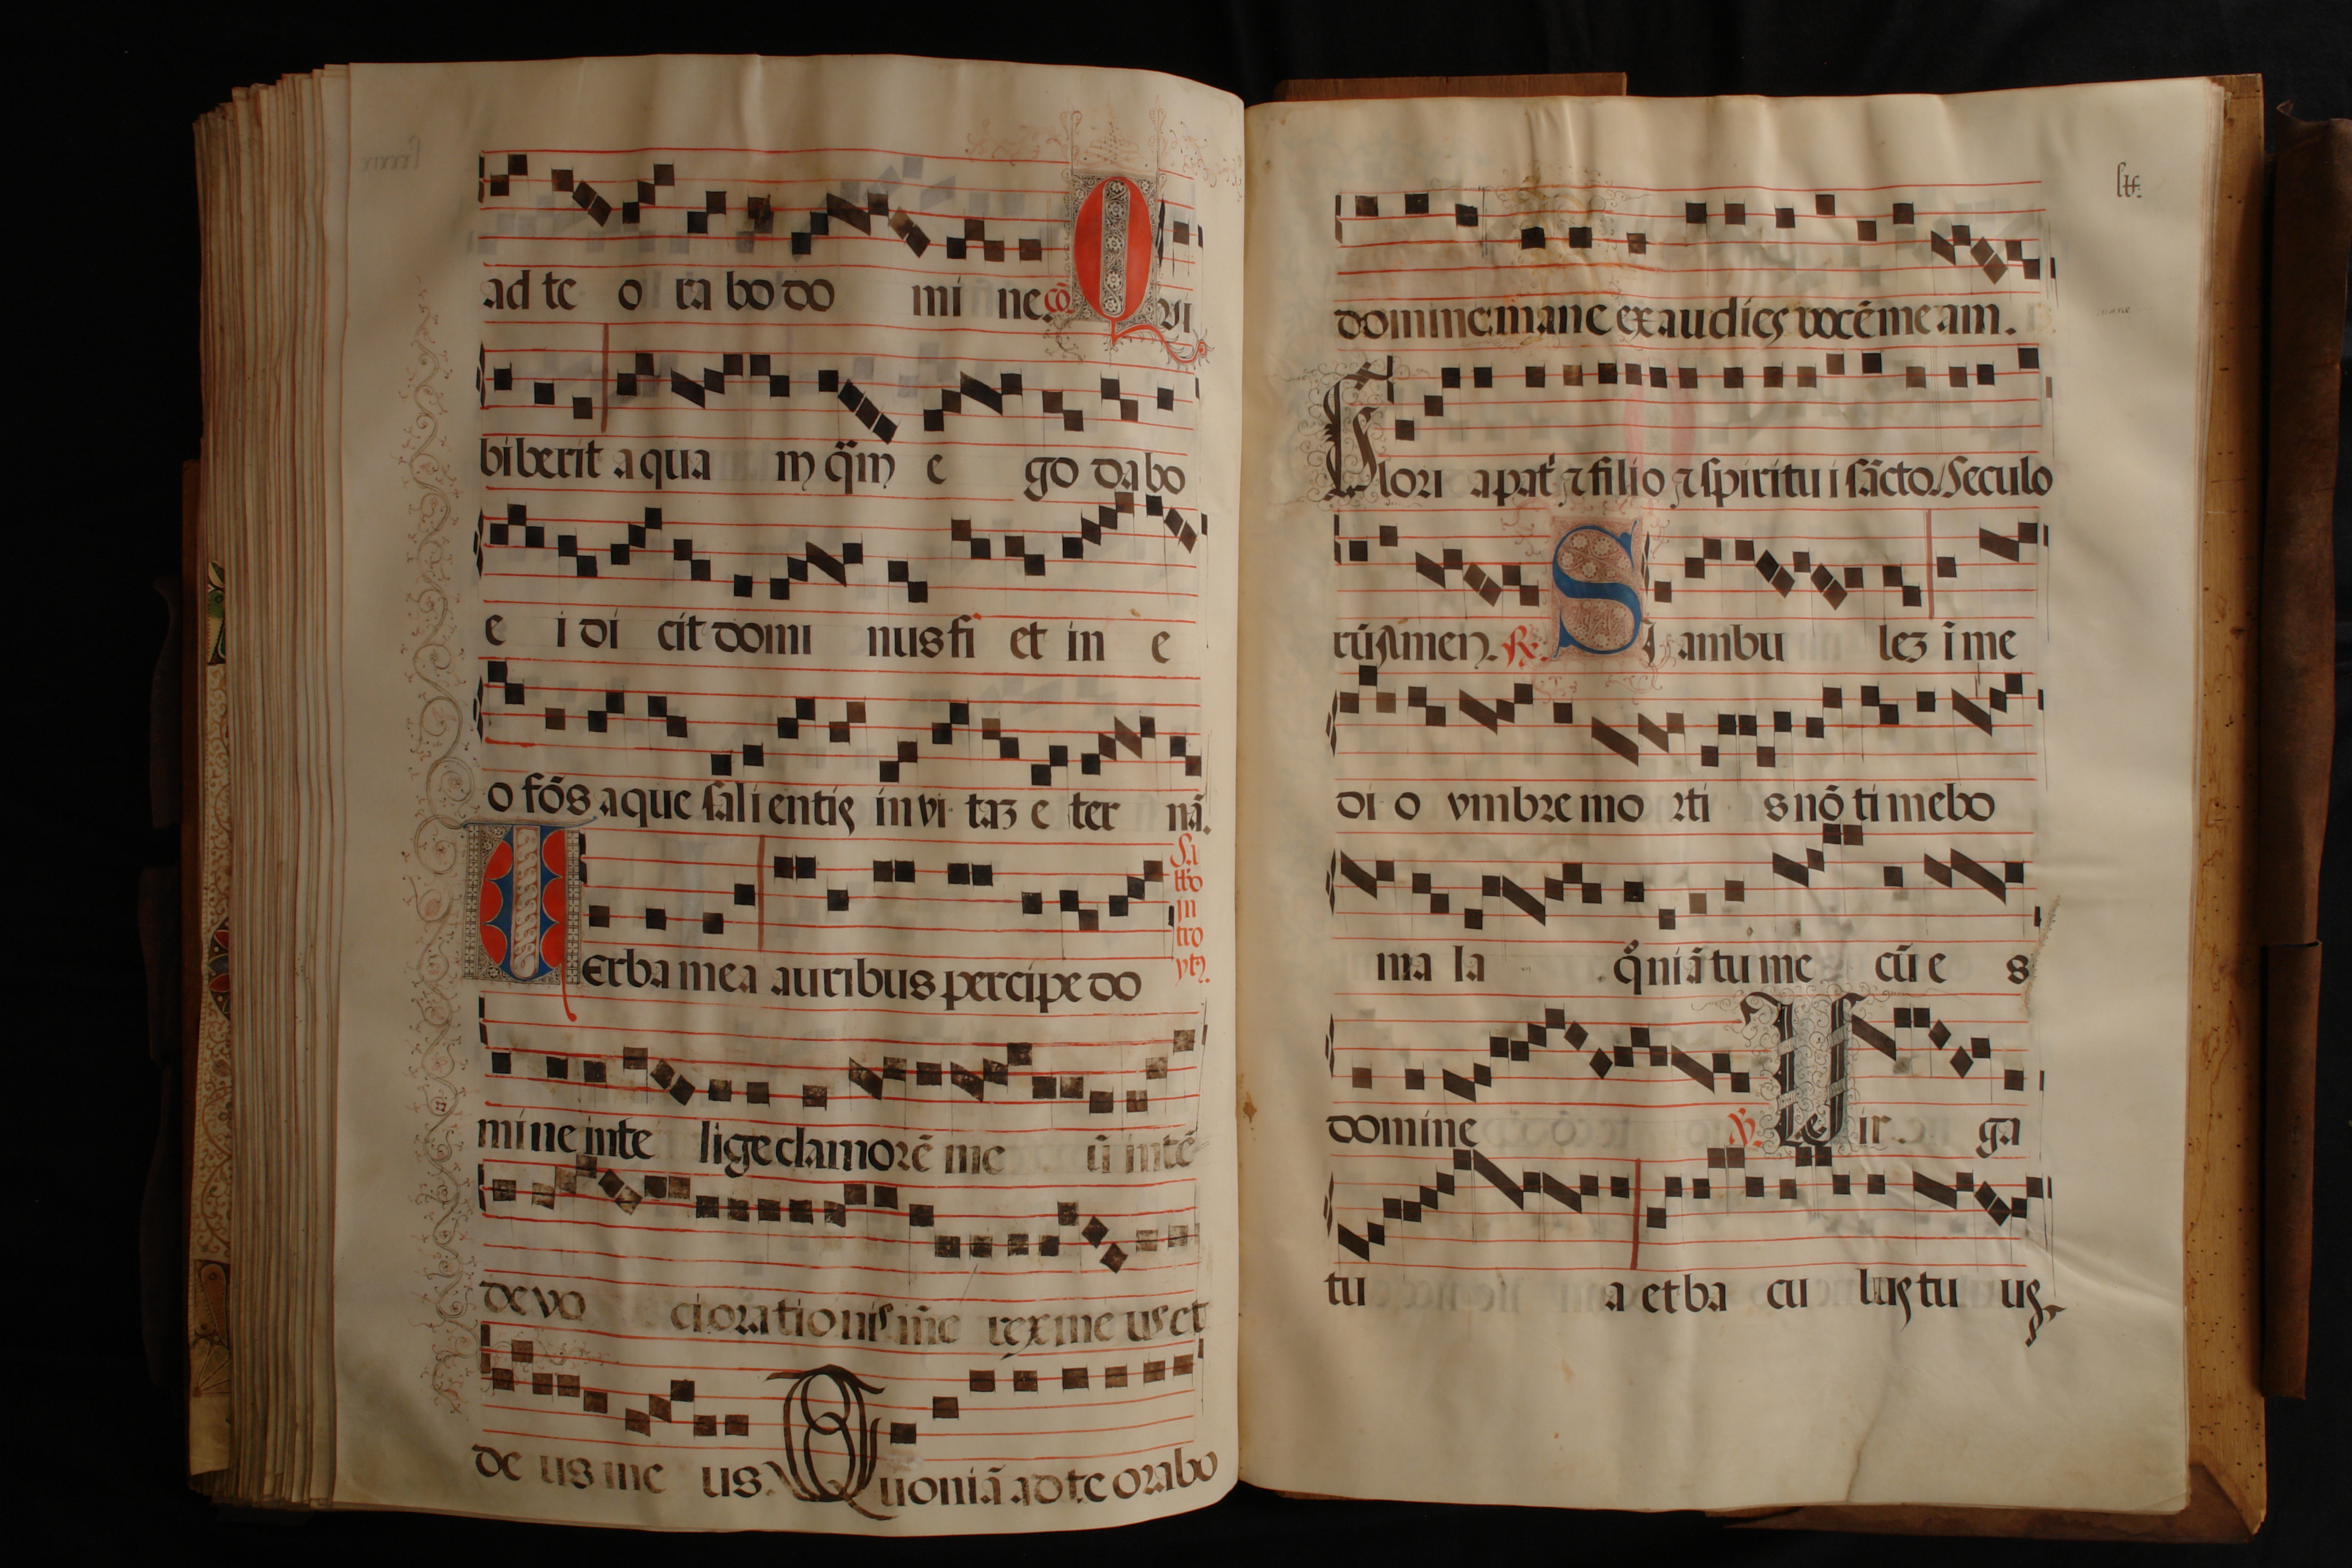 ad te o ra bo do mi ne. cō Q vi
biberit a qua m q̄m e go da bo
e i di cit domi nus fi et in e
o fōs aque salientis in vi taz e ter nā.
Sabbo introytꝰ
Verba mea auribus percipe do
mine inte lige clamorē me ū intē
de vo ci orationis m̄e rex me us et
de us me us. Quoniā ad te orabo
domine mane exaudies vocē me am.
Glori a pat' ⁊ filio ⁊ spiritu i sācto. Seculo
rū Amen. R. Si ambu lez ī me
di o vmbre mo rti s nō ti mebo
ma la qm̄ niā tu me cū e s
domine V. Vir ga
tu a et ba cu lus tu us.